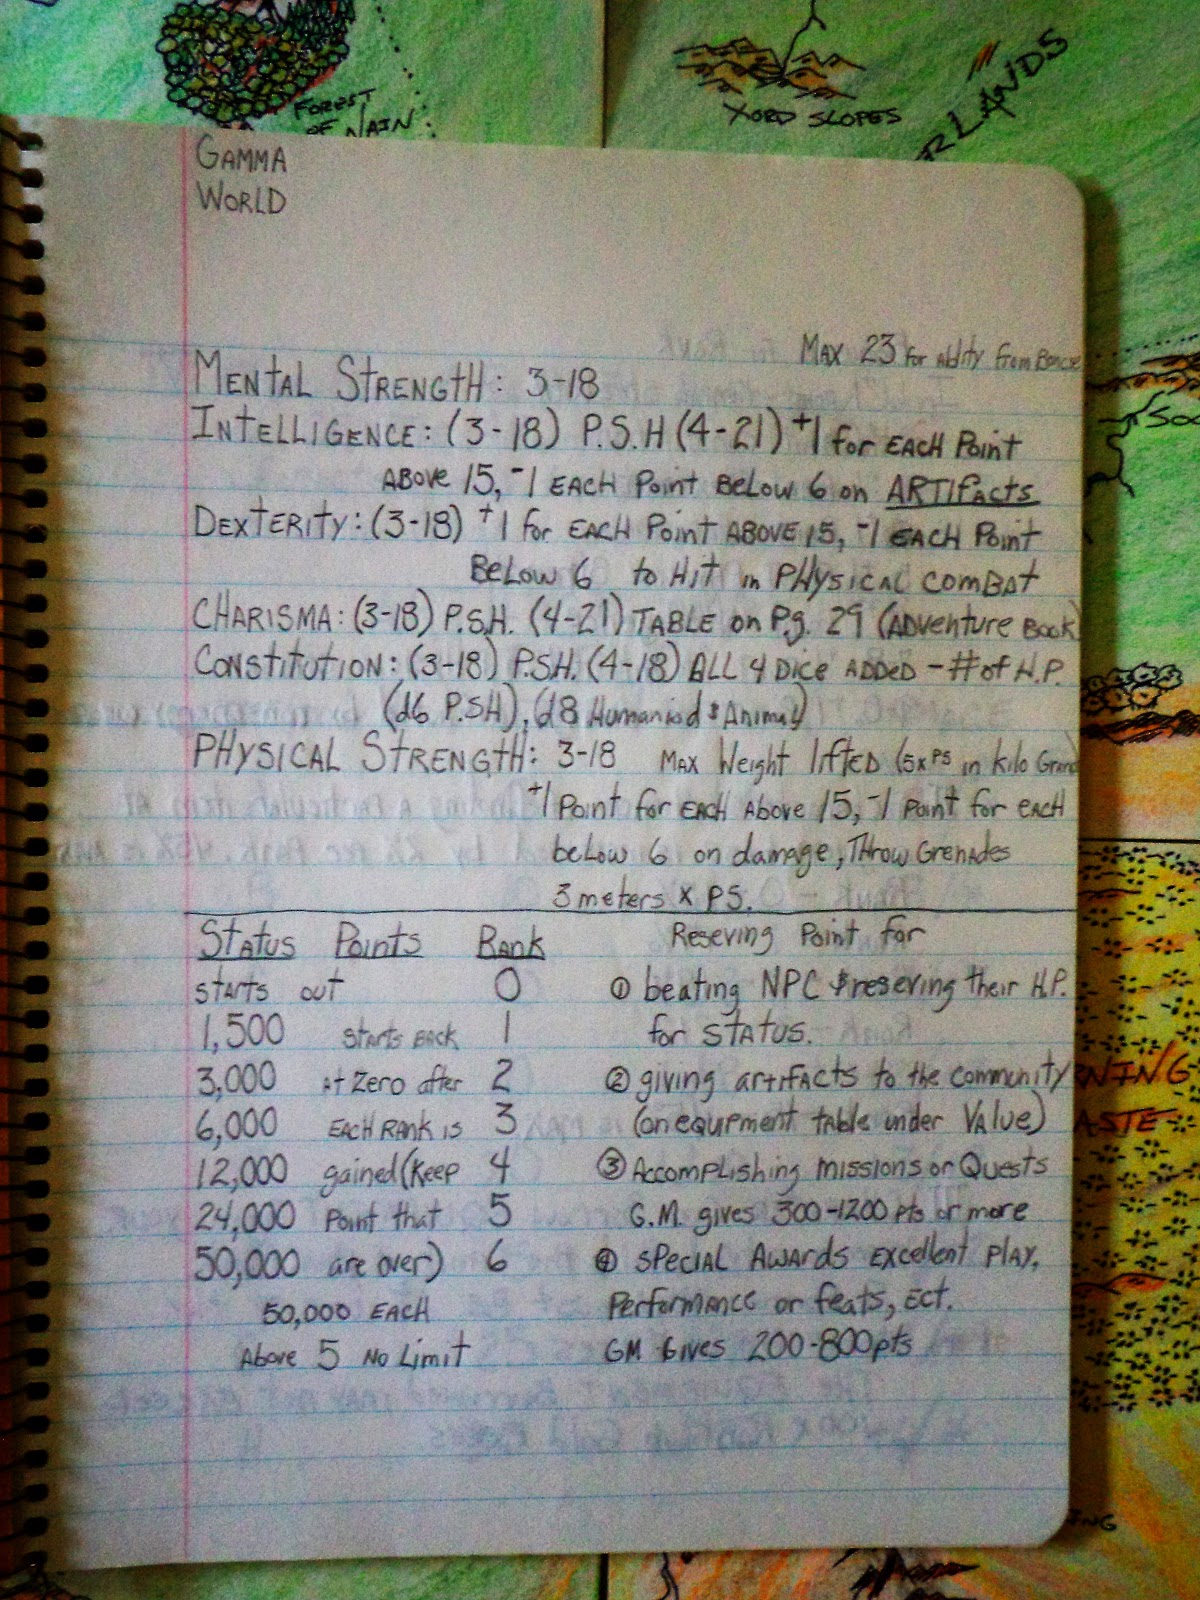 FOREST
OF NAIN
XORD SLOPES
GAMMA
WORLD
MAX 23 for Ability from Bonus
MENTAL STRENGTH: 3-18
INTELLIGENCE: (3-18) P.S.H (4-21) +1 for EACH Point
ABOVE 15, -1 EACH Point BELOW 6 on ARTIfACTS
DEXTERITY: (3-18) +1 for EACH Point ABOVE 15, -1 EACH Point
BELOW 6 to Hit in PHYSICAL COMBAT
CHARISMA: (3-18) P.S.H. (4-21) TABLE on Pg. 29 (ADventure BOOK)
CONSTITUTION: (3-18) P.S.H. (4-18) ALL 4 DICE ADDED - # of H.P.
(d6 P.SH), (d8 Humaniod & Animal)
PHYSICAL STRENGTH: 3-18 MAX Weight liftED (5x PS in kilo Gram
+1 Point for EACH Above 15, -1 Point for EACH
below 6 on damage, THrow Grenades
3 meters x PS.
Status Points Rank
Reseving Point for
STARTS OUT 0
① beating NPC & reseving their H.P.
1,500 STARTS BACK 1
for STATUS.
3,000 AT Zero after 2
② giving artifacts to the community
6,000 EACH RANK is 3
(on equpment table under Value)
12,000 gained (keep 4
③ Accomplishing missions or Quests
24,000 Point that 5
G.M. gives 300-1200 pts or more
50,000 are over) 6
④ SPECIAL AWARDS EXCELLENT PLAY,
50,000 EACH
Performance or feats, Ect.
Above 5 No Limit
GM Gives 200-800 pts